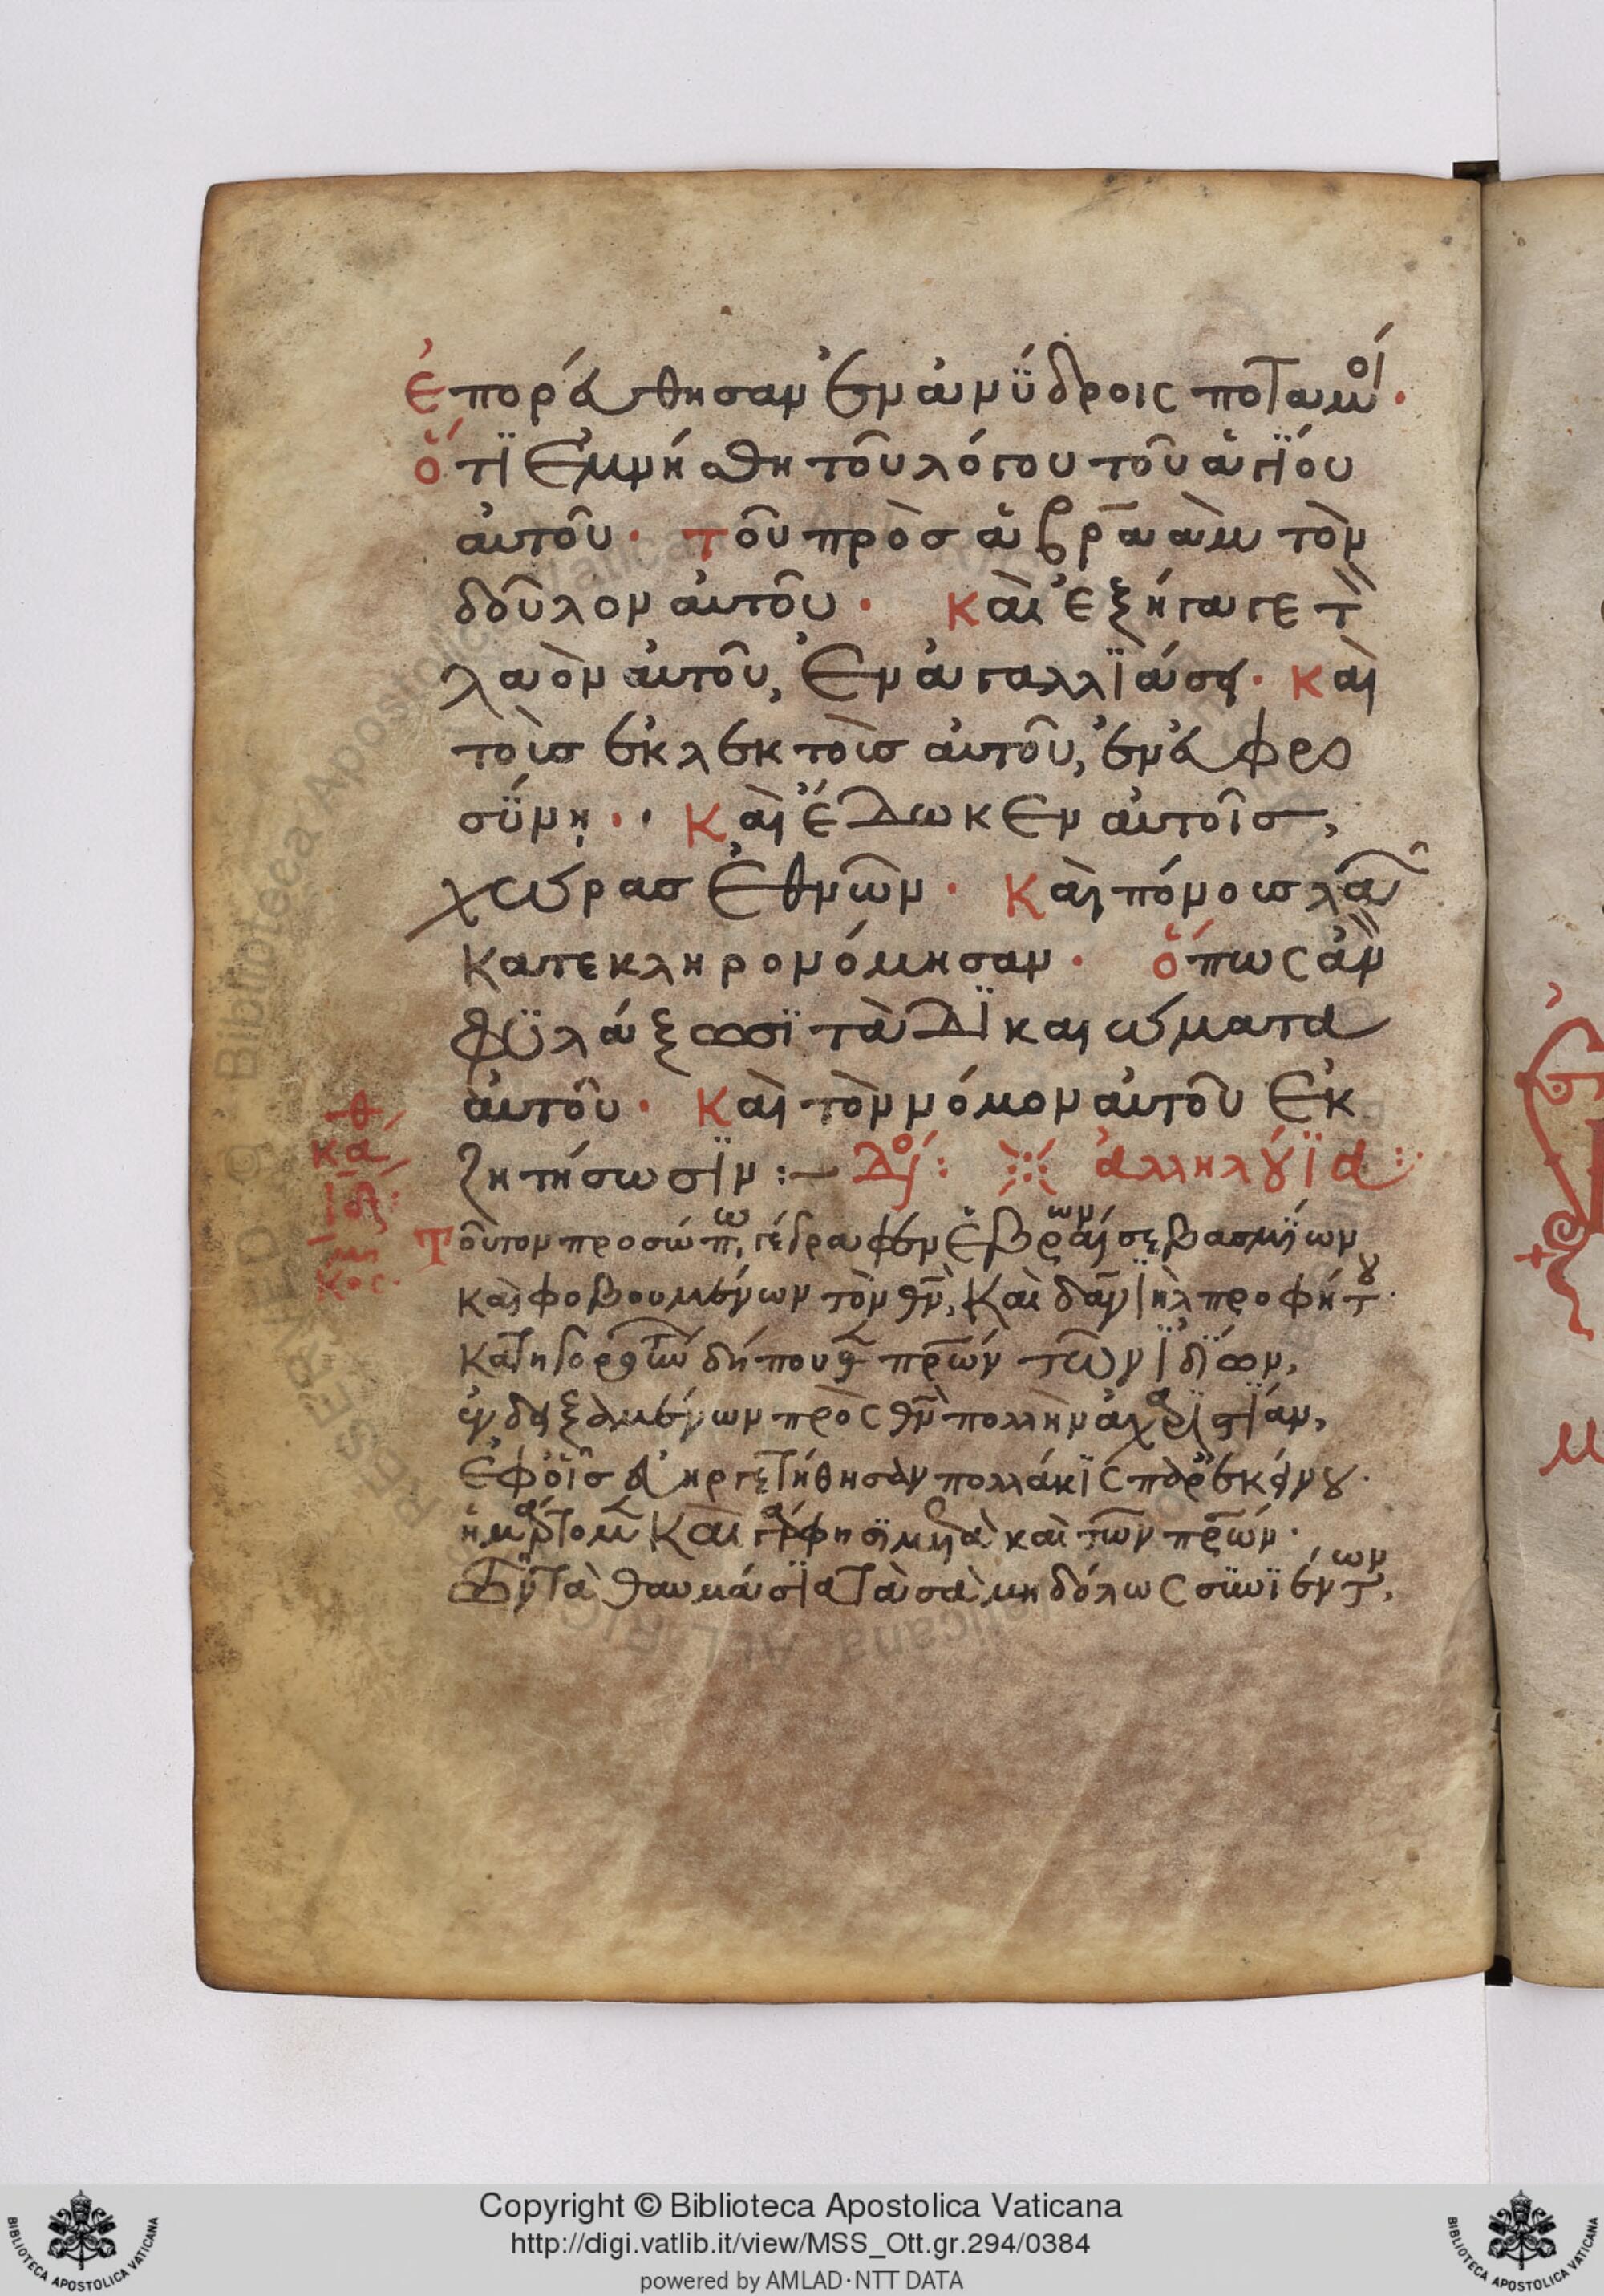 ἐπορεύθησαν ἐν ἀνύδροις ποταμοί·
ὅτϊ ἐμνήσθη τοῦ λόγου τοῦ ἁγϊου
αὐτοῦ· τοῦ πρὸσ ἁβραὰμ τὸν
δοῦλον αὐτοῦ· Καὶ ἐξήγαγε τ
λαὸν αὐτοῦ, ἐν ἀγαλλϊάσει· Καὶ
τοὺσ ἐκλεκτοὺσ αὐτοῦ, ἐν εὐφρο
σύνη· Καὶ ἔδωκεν αὐτοῖσ,
χώρασ ἐθνῶν· Καὶ πόνουσ λαῶ
κατεκληρονόμησαν· ὅπως ἂν
φϋλάξωσϊ τὰ δϊκαιώματα
αὐτοῦ· Καὶ τὸν νόμον αὐτοῦ ἐκ
ζητήσωσϊν :— Δό: ἀλληλούϊα
Τοῦτον προσώπω, γέγραφεν Ἑβραίων σεβασμίων
Καὶ φοβουμένων τὸν θν, Καὶ δανϊὴλ προφήτου·
πρων τῶν ϊδίων,
πρὸς θν πολλὴν ἀχαρϊστϊαν,
Ἐφ οἷσ εὐηργετήθησαν πολλάκϊς παρ ἐκείνου·
Καὶ καὶ τῶν πρων·
τὰ θαυμάσϊα τὰ σὰ μηδόλως συνϊέντων,
Copyright © Biblioteca Apostolica Vaticana
http://digi.vatlib.it/view/MSS_Ott.gr.294/0384
powered by AMLAD·NTT DATA
BIBLIOTECA APOSTOLICA VATICANA
BIBLIOTECA APOSTOLICA VATICANA